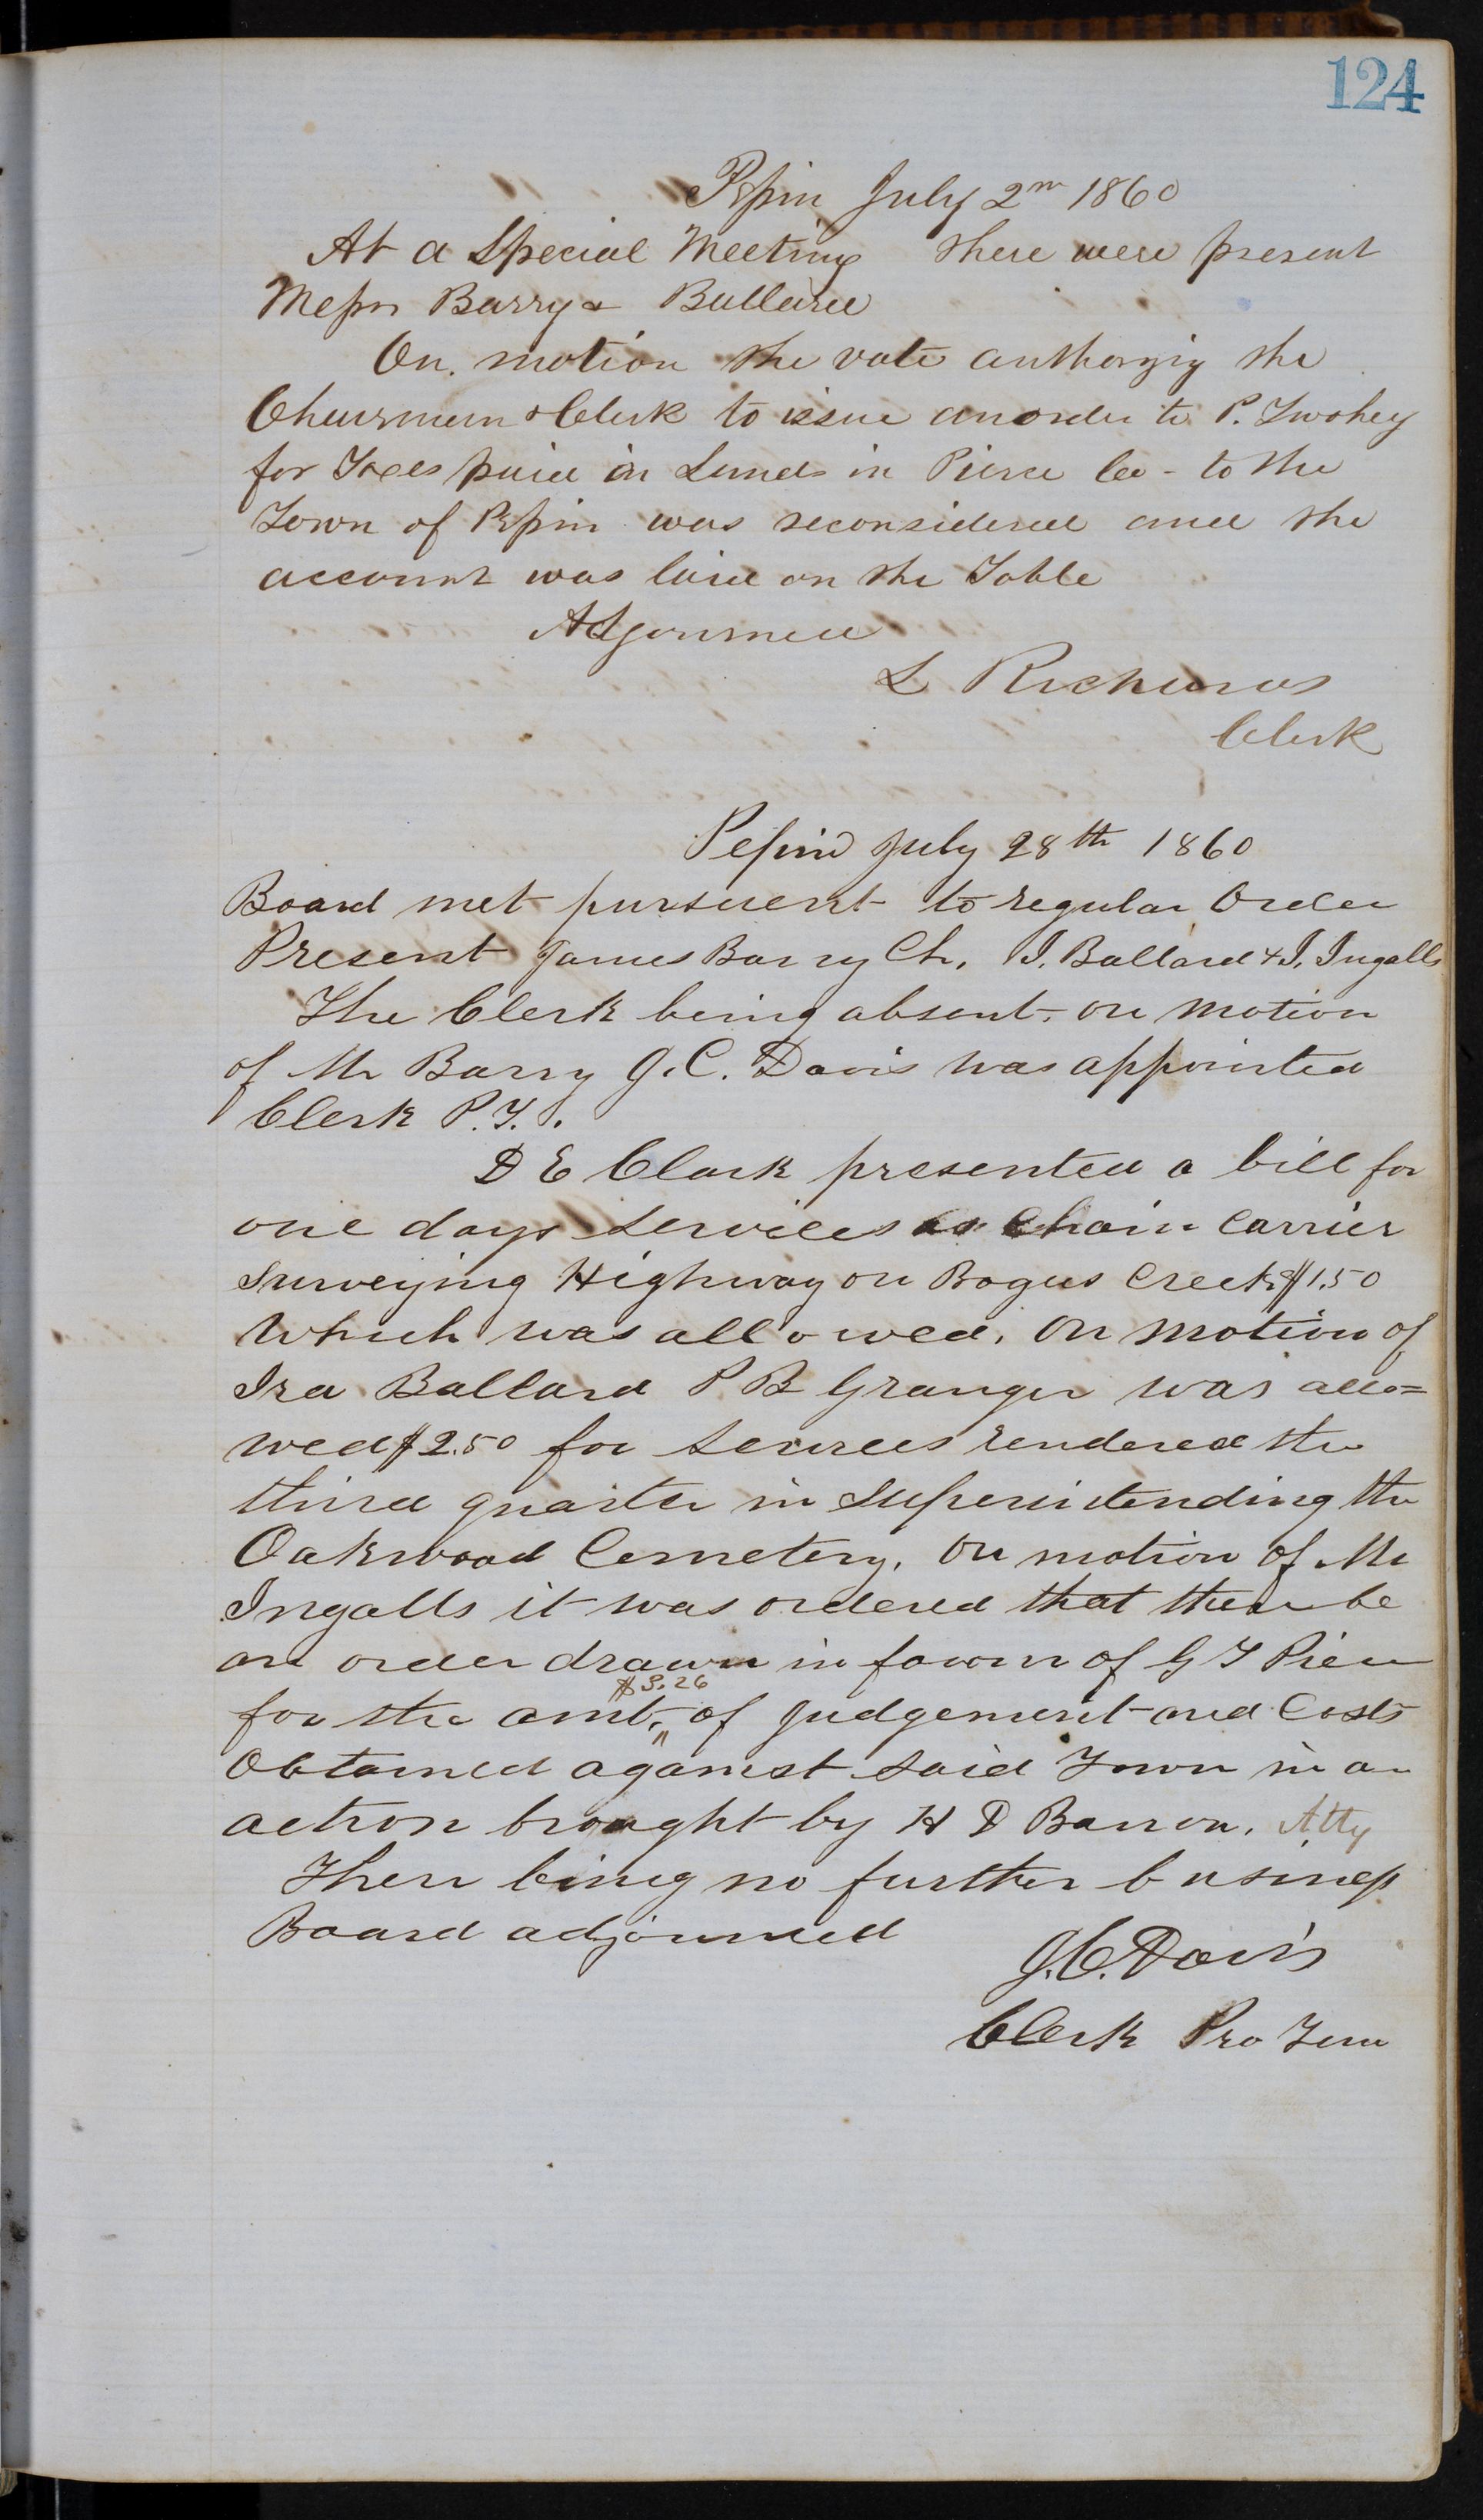 124
Pepin July 2nd 1860
At a Special Meeting there were present
Messrs Barry & Ballard
On motion the vote authorzig the
Chairman & Clerk to issue an order to P. Twohey
for Taxes paid on Lands in Pierce Co - to the
Town of Pepin was reconsidered and the
account was laid on the Table
Adjourned
L Richards
Clerk
Pepin July 28th 1860
Board met pursuent to regular Order
Present James Barry Ch. I. Ballard & I. Ingalls
The Clerk being absent, on motion
of Mr Barry J. C. Davis was appointed
Clerk P.T.
D E Clark presented a bill for
one days services as Chain Carrier
Surveying Highway on Bogus Creek $1.50
Which was allowed. On motion of
Ira Ballard P B Granger was allo=
wed $2.50 for services rendered the
third quarter in Superintending the
Oakwood Cemetery. On motion of Mr
Ingalls it was ordered that there be
an order drawn in favour of G T
for the amt. of Judgement and Costs
Obtained against said Town in an
action brought by H D Barron. Atty
There being no further business
Board adjourned
J. C. Davis
Clerk Pro Tem